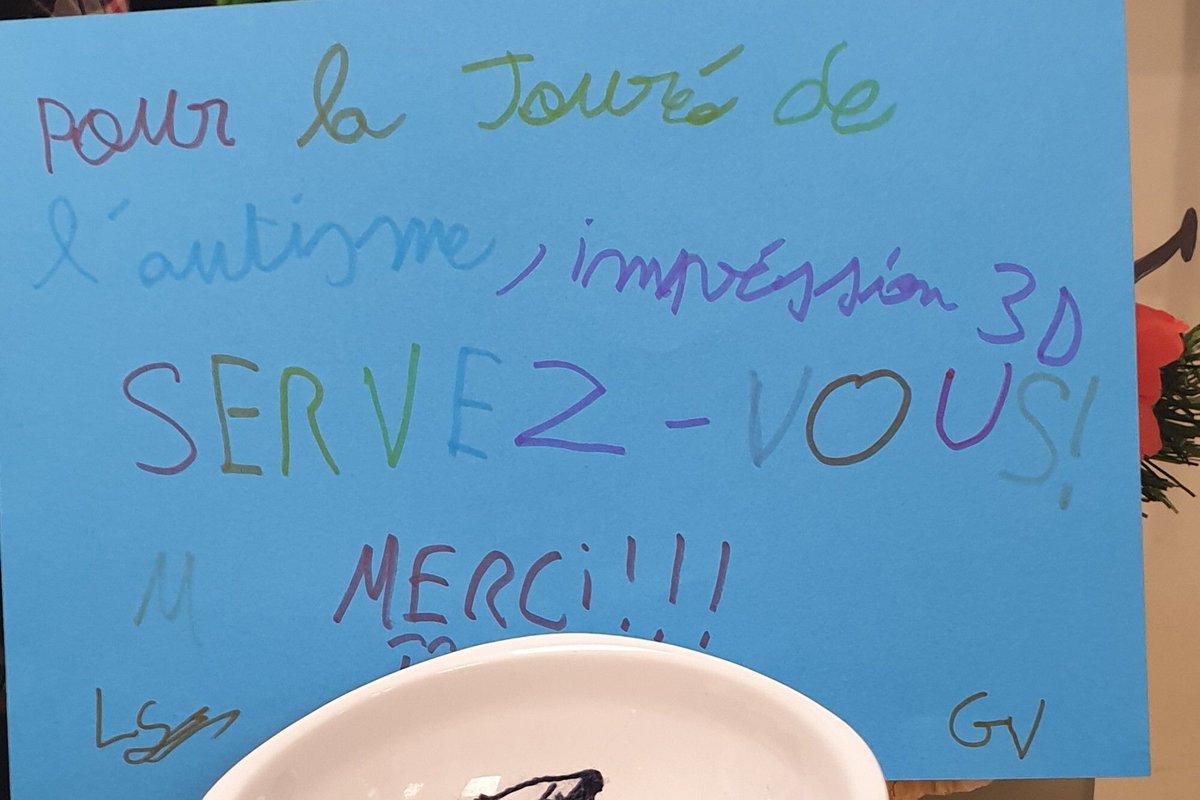 Pour la Jouré de
l'autisme, impréssion 3D
SERVEZ-VOUS!
M MERCi!!!
LS GV